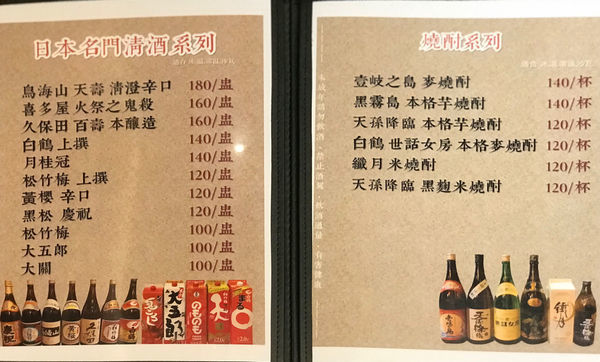 日本名門清酒系列
適合 冰.溫.常溫.沙瓦
鳥海山 天壽 清澄辛口 180/盅
喜多屋 火祭之鬼殺 160/盅
久保田 百壽 本釀造 160/盅
白鶴 上撰 140/盅
月桂冠 140/盅
松竹梅 上撰 120/盅
黃櫻 辛口 120/盅
黑松 慶祝 120/盅
松竹梅 100/盅
大五郎 100/盅
大關 100/盅
燒酎系列
適合 冰.溫.常溫.沙瓦
壹岐之島 麥燒酎 140/杯
黑霧島 本格芋燒酎 140/杯
天孫降臨 本格芋燒酎 120/杯
白鶴 世話女房 本格麥燒酎 120/杯
纖月米燒酎 120/杯
天孫降臨 黑麴米燒酎 120/杯
未成年請勿飲酒 禁止酒駕